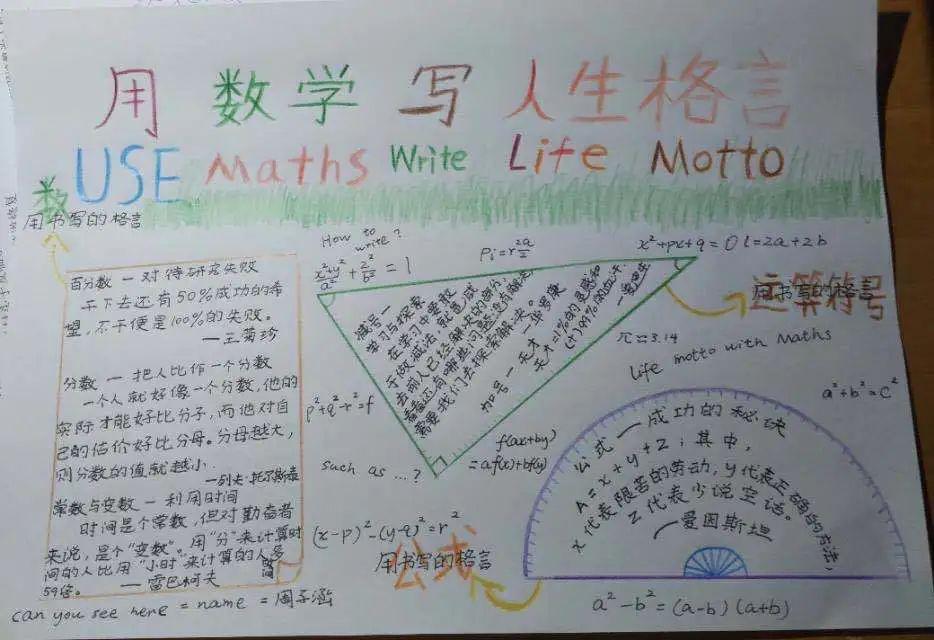 用数学写人生格言
USE Maths Write Life Motto
数
用书写的格言
百分数一对待研究失败
干下去还有50%成功的希
望,不干便是100%的失败。
—王菊珍
分数 — 把人比作一个分数
一个人就好像一个分数,他的
实际才能好比分子,而他对自
己的估价好比分母。分母越大,
则分数的值就越小.
—列夫·托尔斯泰
常数与变数 — 利用时间
时间是个常数,但对勤奋者
来说,是个"变数"。用"分"来计算时
间的人比用"小时"来计算的人多
59倍。
—雷巴柯夫
can you see here = name = 周子涵
How to
write?
Pi=r
x²+px+q=0 l=2a+2b
减号一
学习与探索
在学习中要敢
于做减法,就是减
去前人已经解决的部分,
看看还有哪些问题没有解决,
需要我们去探索解决。
加号一天才一样要
天才=1%的灵感和
(+)99%的血汗.
运算符号
用书写的格言
π≈3.14
life motto with Maths
a²+b²=c²
p²+q²-r²=f
such as ...?
f(ax+by)
=af(x)+bf(y)
(x-p)²-(y-q)²=r²
公式
用书写的格言
公式一成功的秘诀
A=x+y+z;其中,
x代表限苦的劳动,y代表正确的方法,
Z代表少说空话。
—爱因斯坦
a²-b²=(a-b)(a+b)